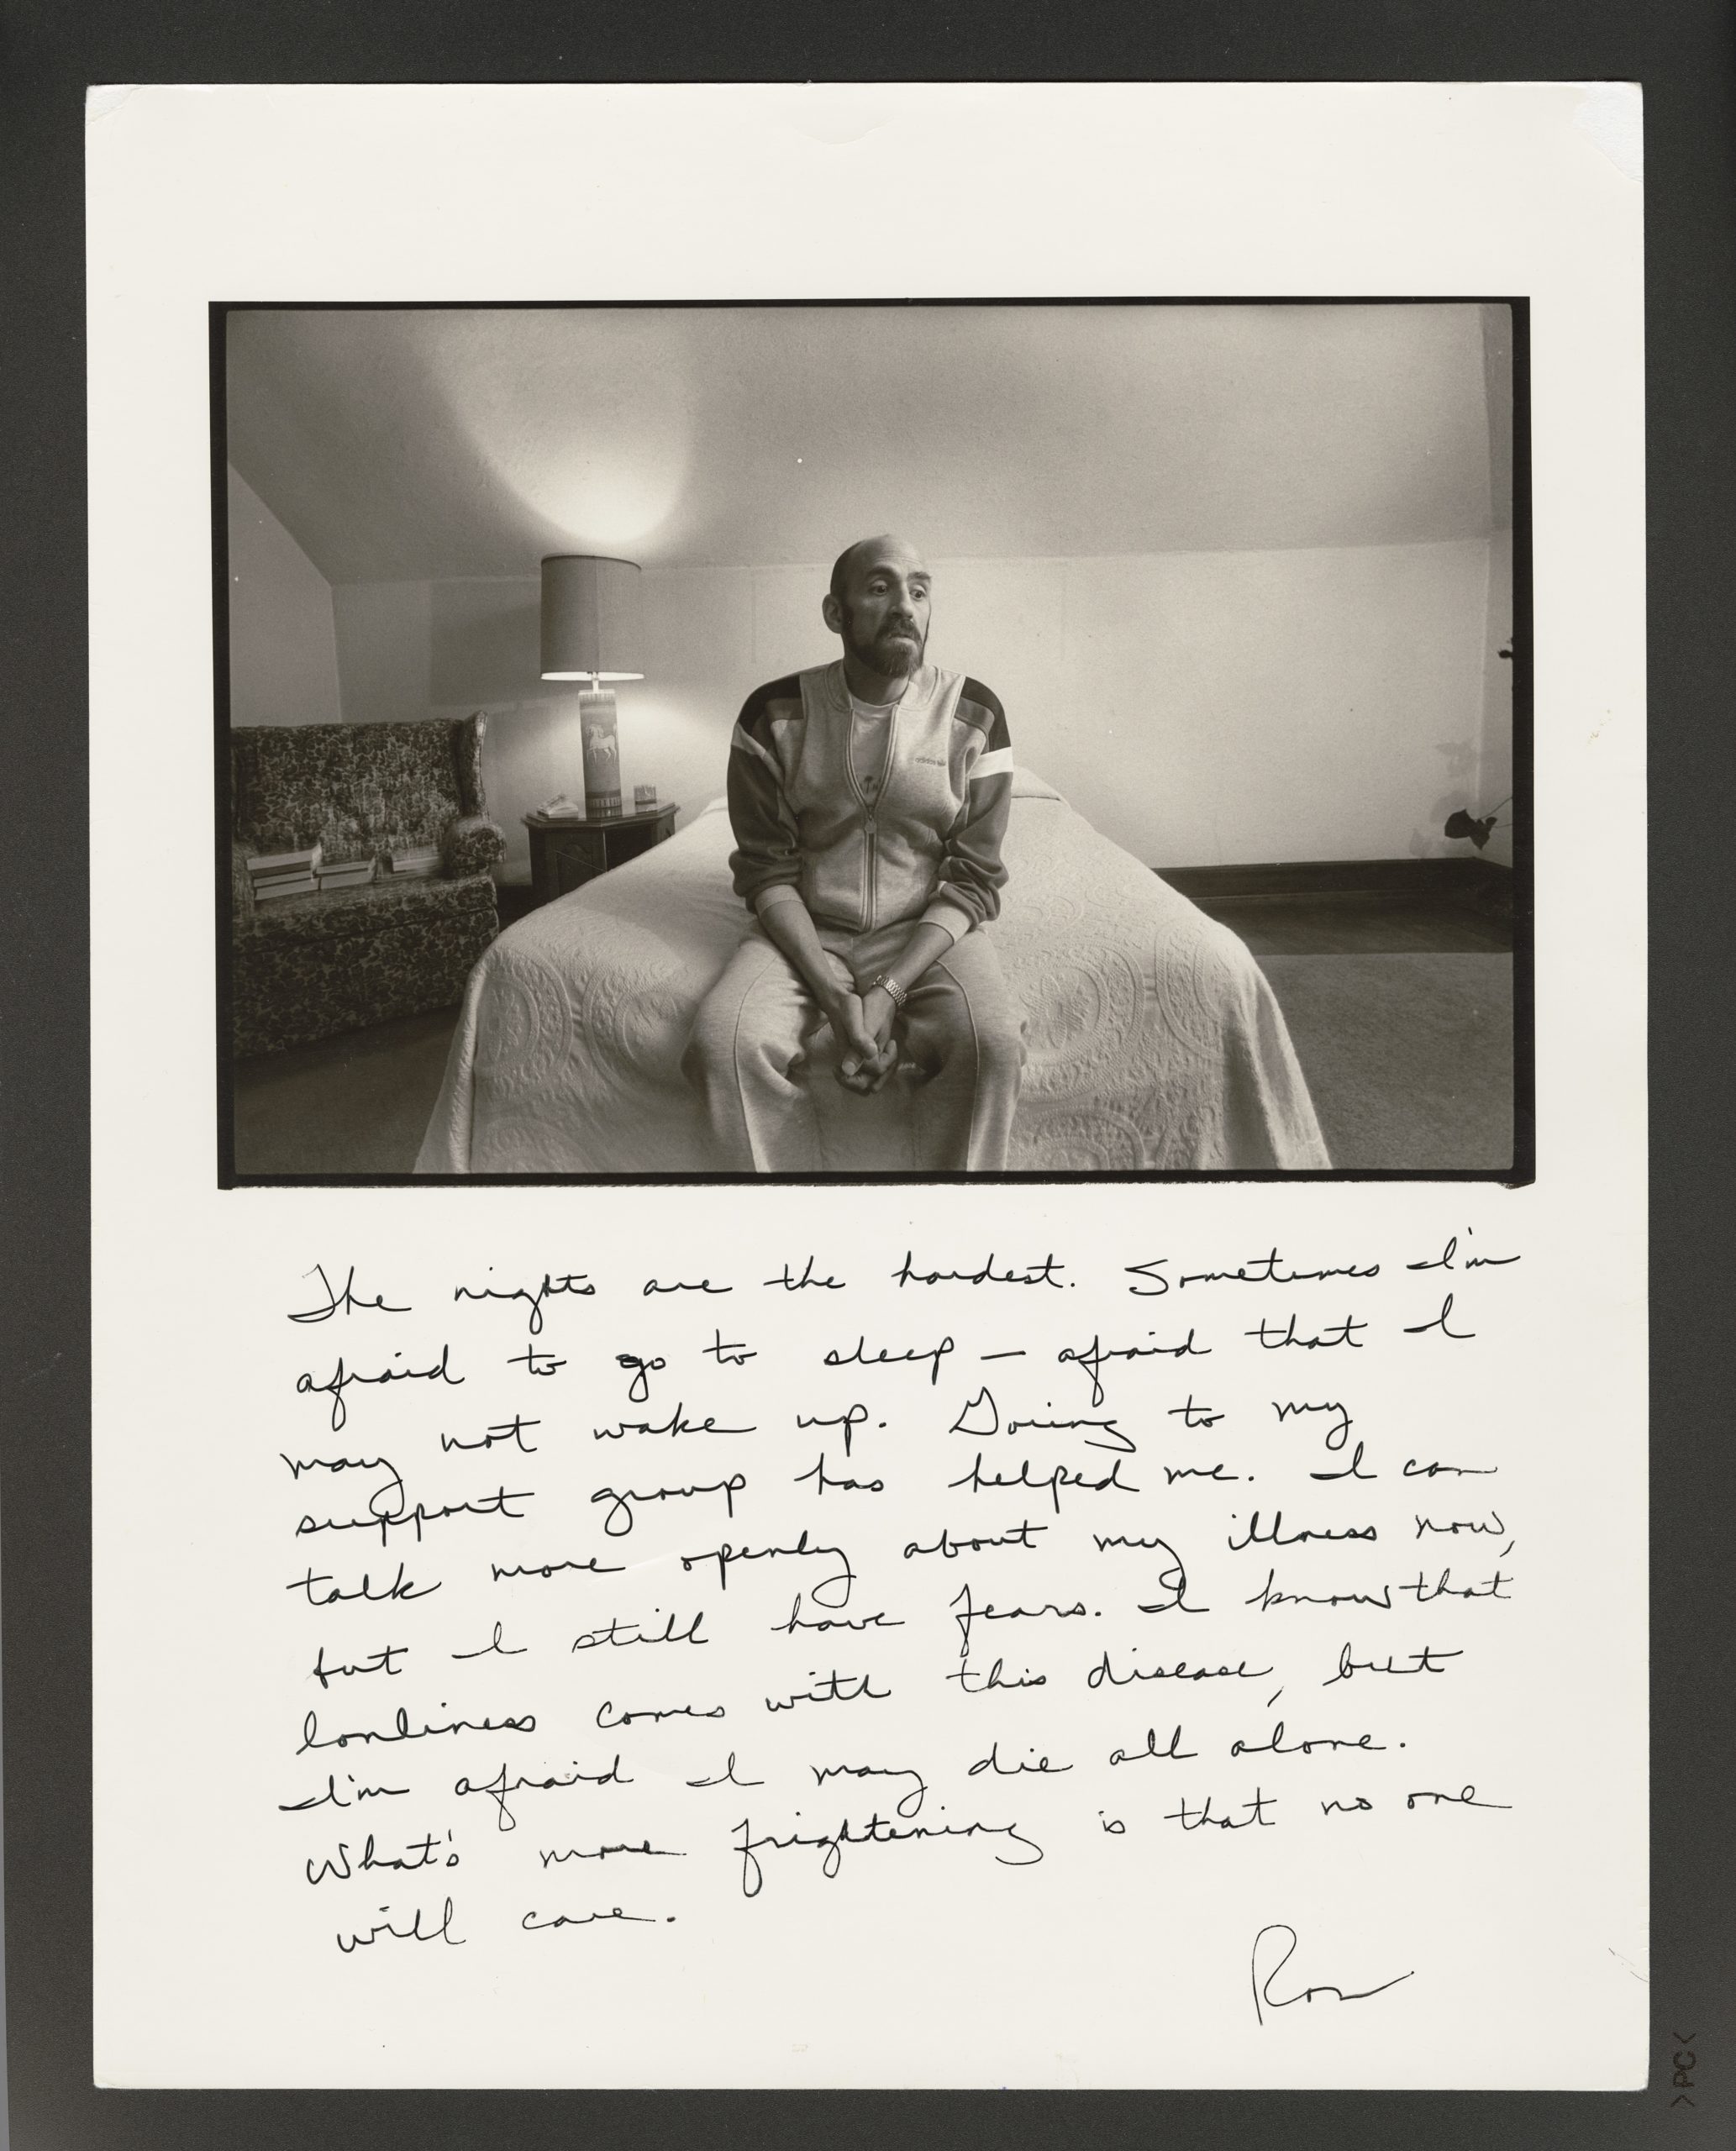 adidas
The nights are the hardest. Sometimes I'm
afraid to go to sleep — afraid that I
may not wake up. Going to my
support group has helped me. I can
talk more openly about my illness now,
but I still have fears. I know that
lonliness comes with this disease, but
I'm afraid I may die all alone.
What's more frightening is that no one
will care.
Ron
>PC<